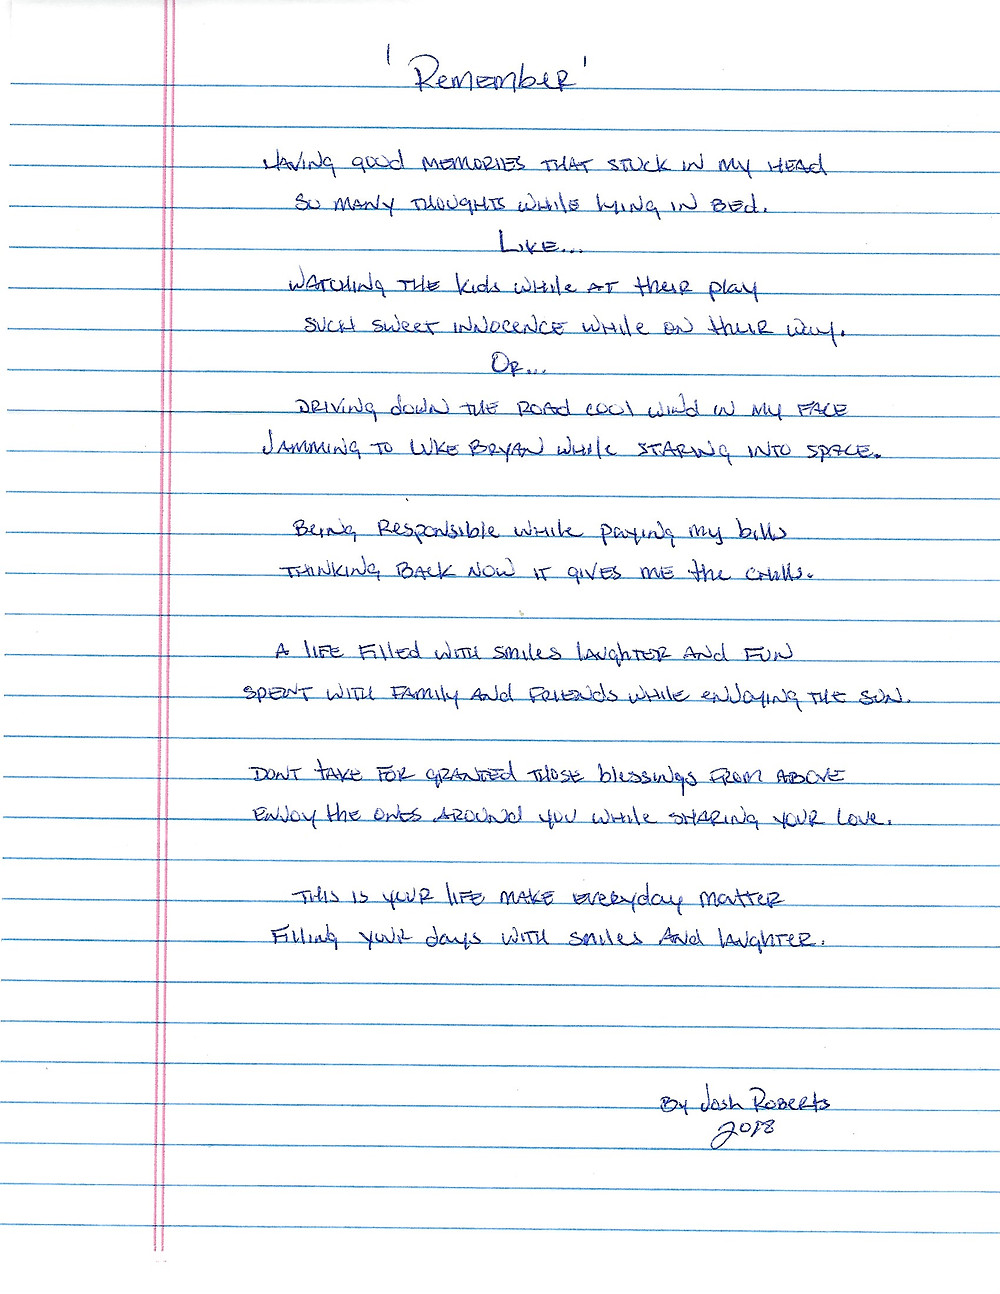 'Remember'
Having good memories that stuck in my head
So many thoughts while lying in bed.
Like...
Watching the kids while at their play
Such sweet innocence while on their way.
Or...
Driving down the road cool wind in my face
Jamming to Luke Bryan while staring into space.
Being Responsible while paying my bills
Thinking back now it gives me the chills.
A life filled with smiles laughter and fun
Spent with family and friends while enjoying the sun.
Dont take for granted those blessings from above
Enjoy the ones around you while sharing your love.
This is your life make everyday matter
Filling your days with smiles and laughter.
By Josh Roberts
2018